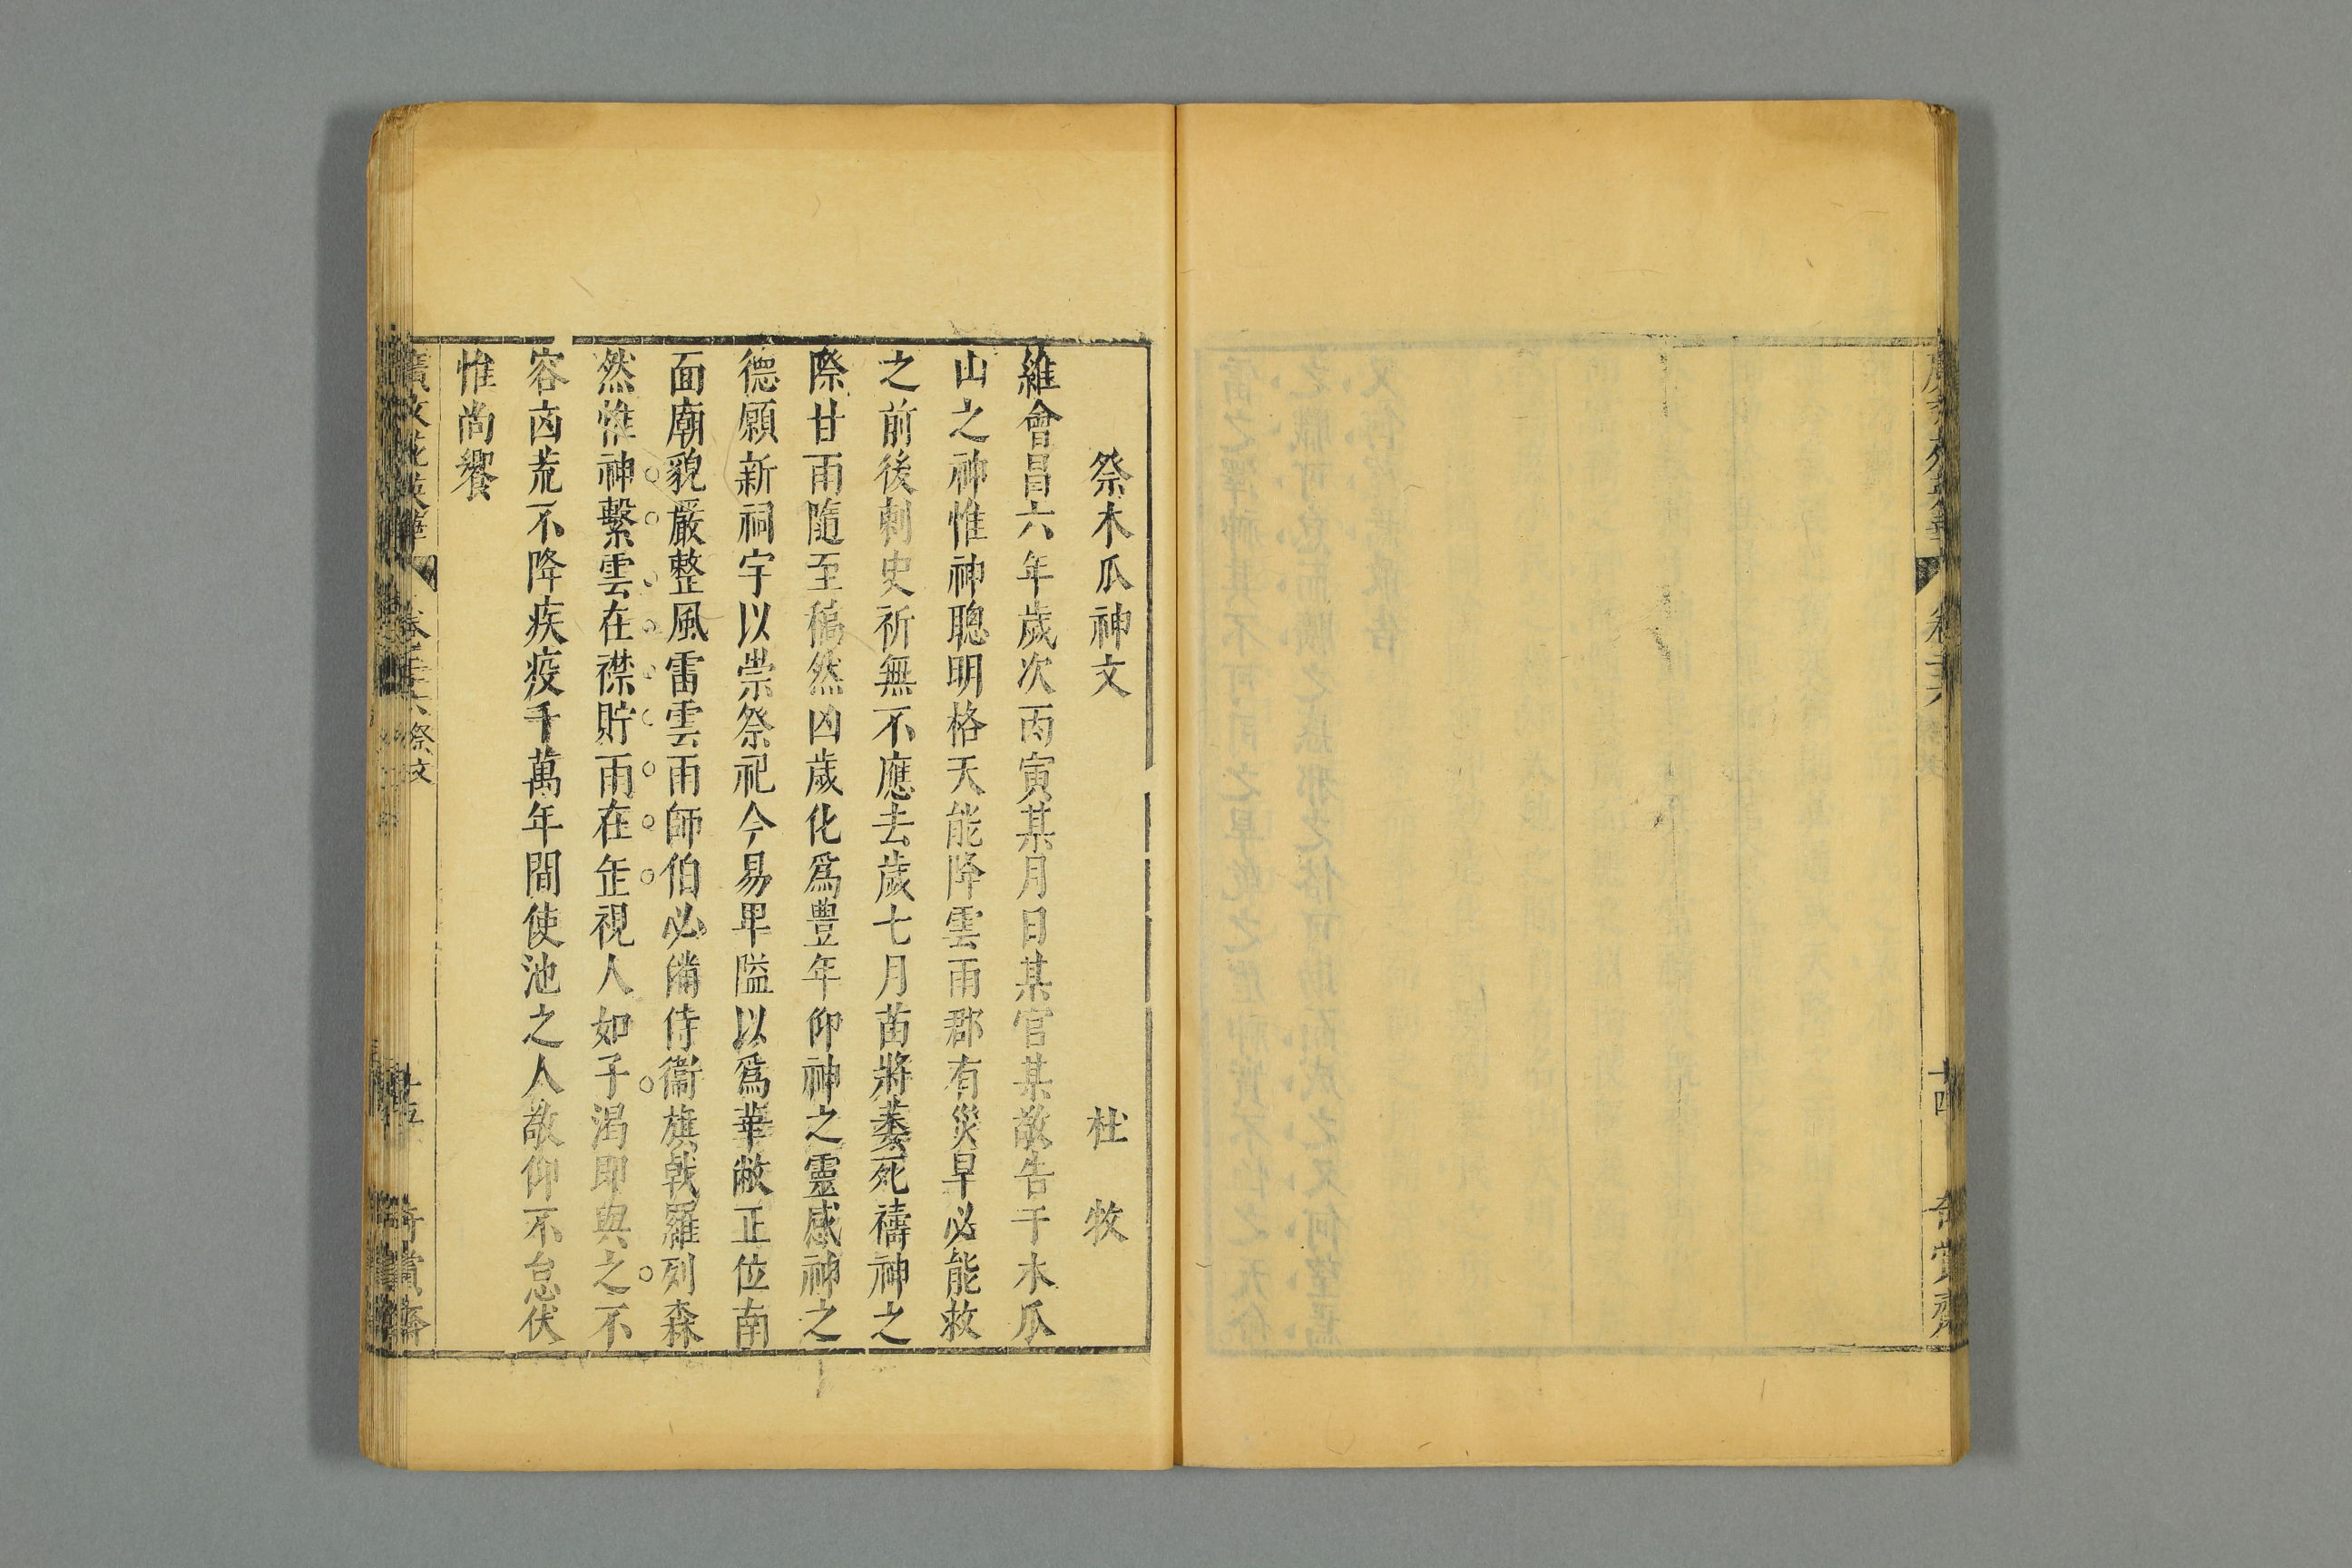 十四
奇賞齋
祭木瓜神文 杜牧
維會昌六年歲次丙寅某月日某官某敬告于木瓜
山之神惟神聰明格天能降雲雨郡有災旱必能救
之前後刺史祈無不應去歲七月苗將萎死禱神之
際甘雨隨至槁然凶歲化爲豊年仰神之靈感神之
德願新祠宇以崇祭祀今易卑隘以爲華敞正位南
面廟貌嚴整風雷雲雨師伯必備侍衞旗戟羅列森
然惟神繫雲在襟貯雨在缶視人如子渴即與之不
容凶荒不降疾疫千萬年間使池之人敬仰不怠伏
惟尚饗
廣文苑英華 卷二十六 祭文
十五
奇賞齋